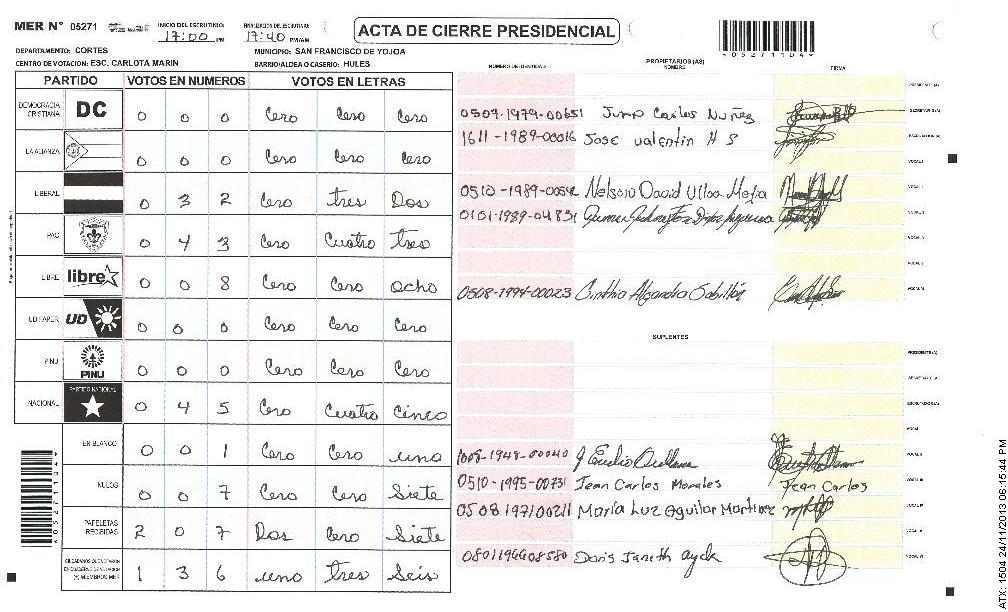 MER N° 05271 INICIO DEL ESCRUTINIO: 17:00 PM FINALIZACION DEL ESCRUTINIO: 17:40 PM/AM
ACTA DE CIERRE PRESIDENCIAL
*05271104*
DEPARTAMENTO: CORTES MUNICIPIO: SAN FRANCISCO DE YOJOA
CENTRO DE VOTACION: ESC. CARLOTA MARIN BARRIO/ALDEA O CASERIO: HULES
PARTIDO VOTOS EN NUMEROS VOTOS EN LETRAS
DEMOCRACIA CRISTIANA DC 0 0 0 Cero Cero Cero
LA ALIANZA 0 0 0 Cero Cero Cero
LIBERAL 0 3 2 Cero tres Dos
PAC 0 4 3 Cero Cuatro tres
LIBRE libre 0 0 8 Cero Cero ocho
UD FAPER UD 0 0 0 Cero Cero Cero
PINU PINU 0 0 0 Cero Cero Cero
NACIONAL PARTIDO NACIONAL 0 4 5 Cero Cuatro Cinco
EN BLANCO 0 0 1 Cero Cero uno
NULOS 0 0 7 Cero Cero Siete
PAPELETAS RECIBIDAS 2 0 7 Dos Cero Siete
1 3 6 uno tres Seis
NUMERO DE IDENTIDAD PROPIETARIOS (AS) NOMBRE FIRMA
PRESIDENTE (A)
0507-1979-00651 Juan Carlos Nuñez SECRETARIO (A)
1611-1989-00016 Jose valentin H S ESCRUTADOR (A)
VOCAL I
Nelson David Ulloa Mejia
0101-1989-04831
0508-1994-00023 Cinthia Alejandra Gabillón
SUPLENTES
PRESIDENTE (A)
SECRETARIO (A)
ESCRUTADOR (A)
1008-1948-00040 J Eudio Orellana
0510-1995-00731 Jean Carlos Morales Jean Carlos
0508 197100211 María Luz Aguilar Martinez
Doris Janeth
ATX: 1504 24/11/2013 06:15:44 PM